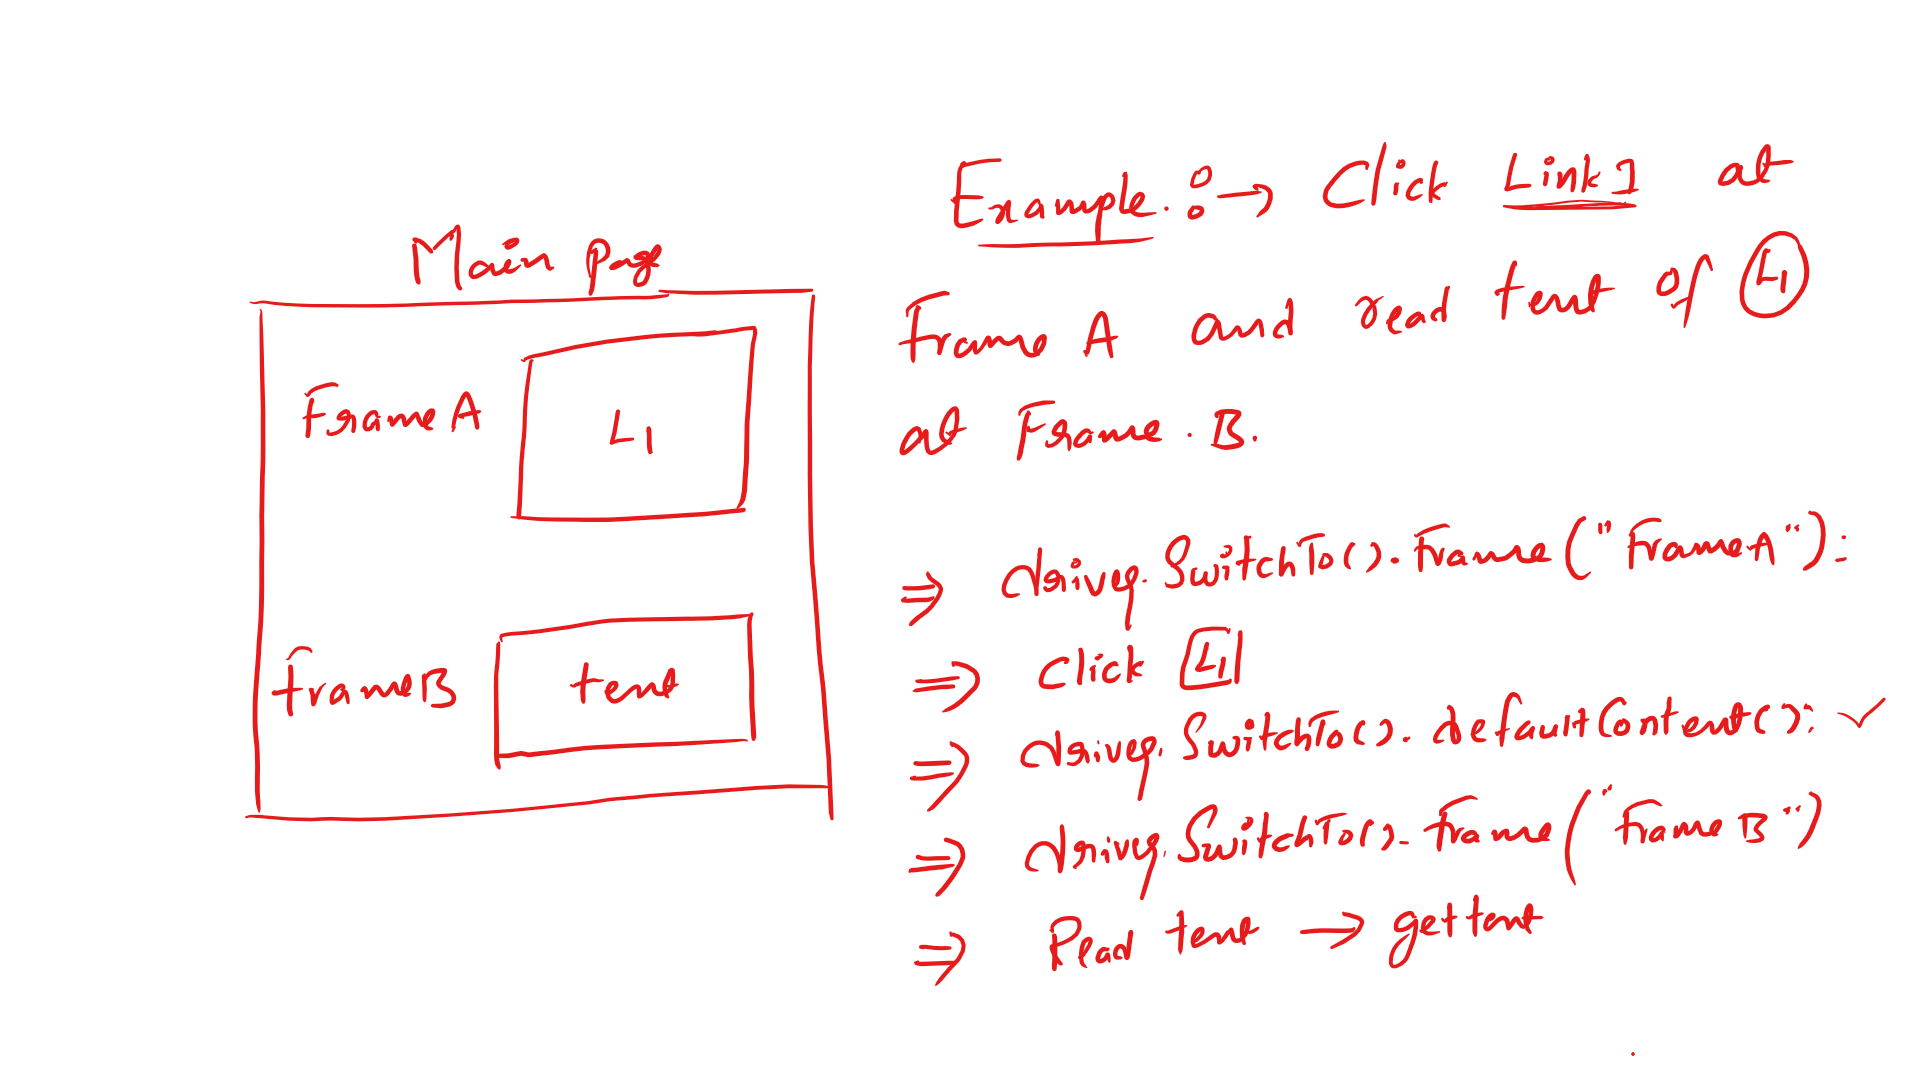 Main page
Frame A
L1
Frame B
text
Example :→ Click Link1 at
Frame A and read text of L1
at Frame. B.
⇒ driver.SwitchTo().Frame("FrameA");
⇒ Click L1
⇒ driver.SwitchTo().defaultContent(); ✓
⇒ driver.SwitchTo().frame("frame B")
⇒ Read text → gettext